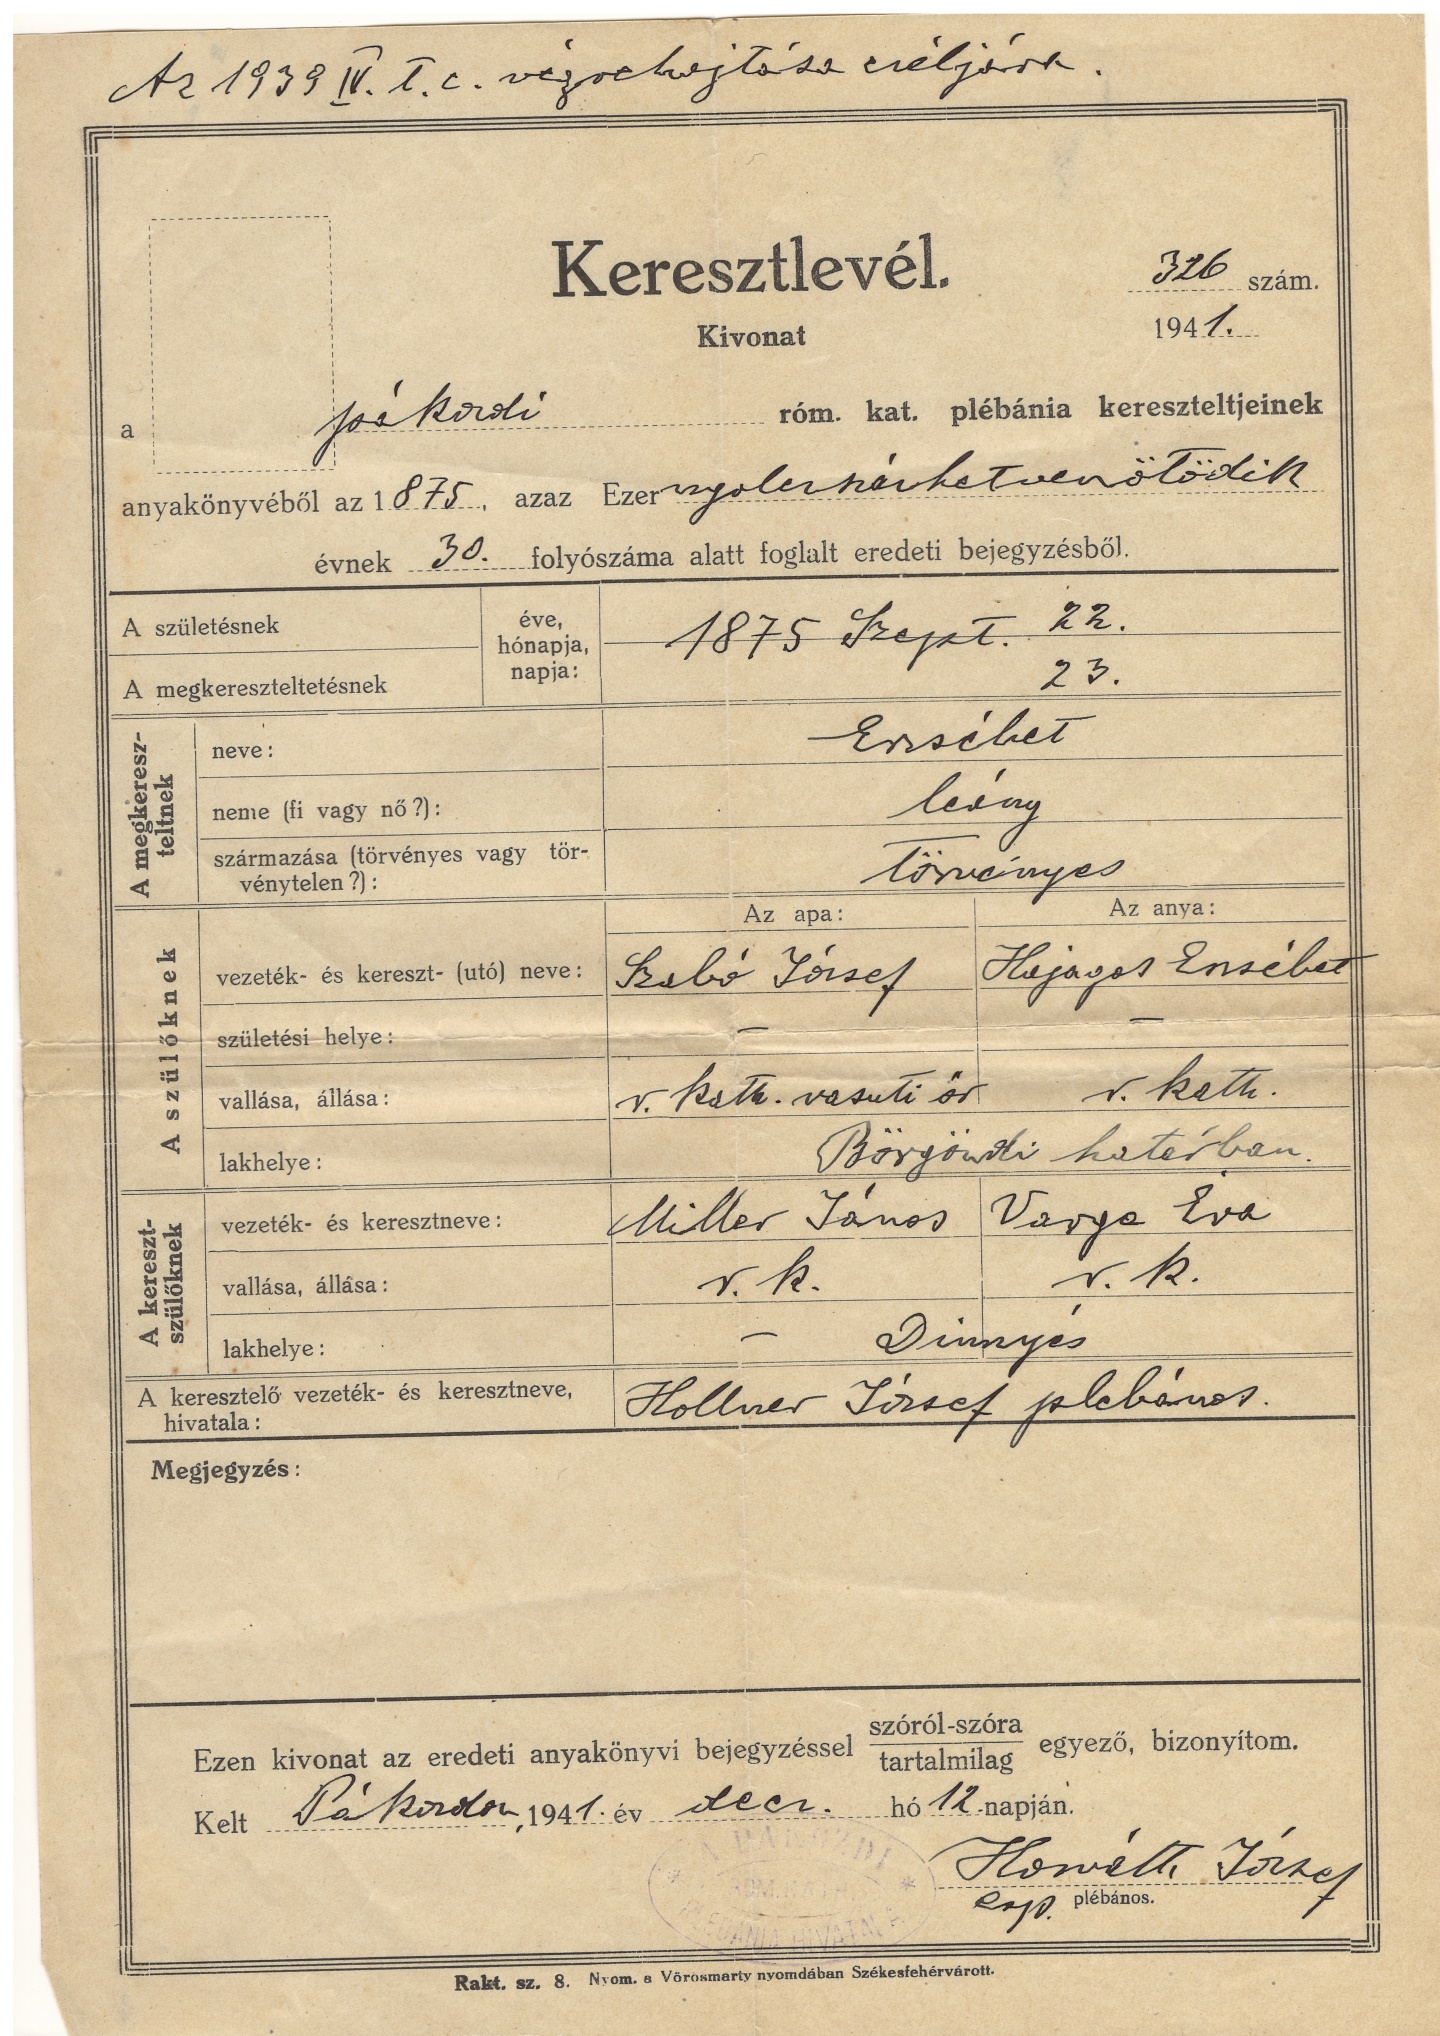 Az 1939 IV. t. c. végrehajtása céljára.
Keresztlevél.
326 szám.
Kivonat
1941.
a pákozdi róm. kat. plébánia kereszteltjeinek
anyakönyvéből az 1875, azaz Ezer nyolcszázhetvenötödik
évnek 30. folyószáma alatt foglalt eredeti bejegyzésből.
A születésnek
éve, hónapja, napja:
1875 Szept. 22.
A megkereszteltetésnek
23.
A megkeresz-
teltnek
neve: Erzsébet
neme (fi vagy nő?): leány
származása (törvényes vagy tör-
vénytelen?): törvényes
Az apa: Az anya:
A szülőknek
vezeték- és kereszt- (utó) neve: Szabó József Hajagos Erzsébet
születési helye: — —
vallása, állása: r. kath. vasuti őr r. kath.
lakhelye: Börgöndi határban.
A kereszt-
szülőknek
vezeték- és keresztneve: Miller János Varga Éva
vallása, állása: r. k. r. k.
lakhelye: — Dinnyés
A keresztelő vezeték- és keresztneve,
hivatala: Hollner József plébános.
Megjegyzés:
Ezen kivonat az eredeti anyakönyvi bejegyzéssel szóról-szóra
tartalmilag egyező, bizonyítom.
Kelt Pákozdon, 1941. év decz. hó 12 napján.
Horváth József
esp. plébános.
A PÁKOZDI
RÓM. KATH.
PLÉBÁNIA HIVATALA
Rakt. sz. 8. Nyom. a Vörösmarty nyomdában Székesfehérvárott.